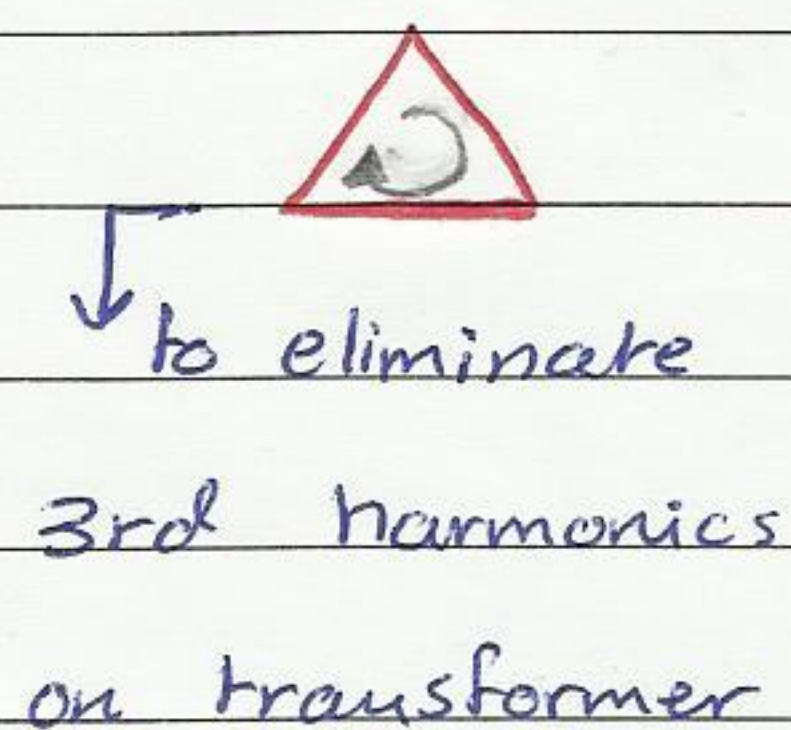 to eliminate
3rd harmonics
on transformer